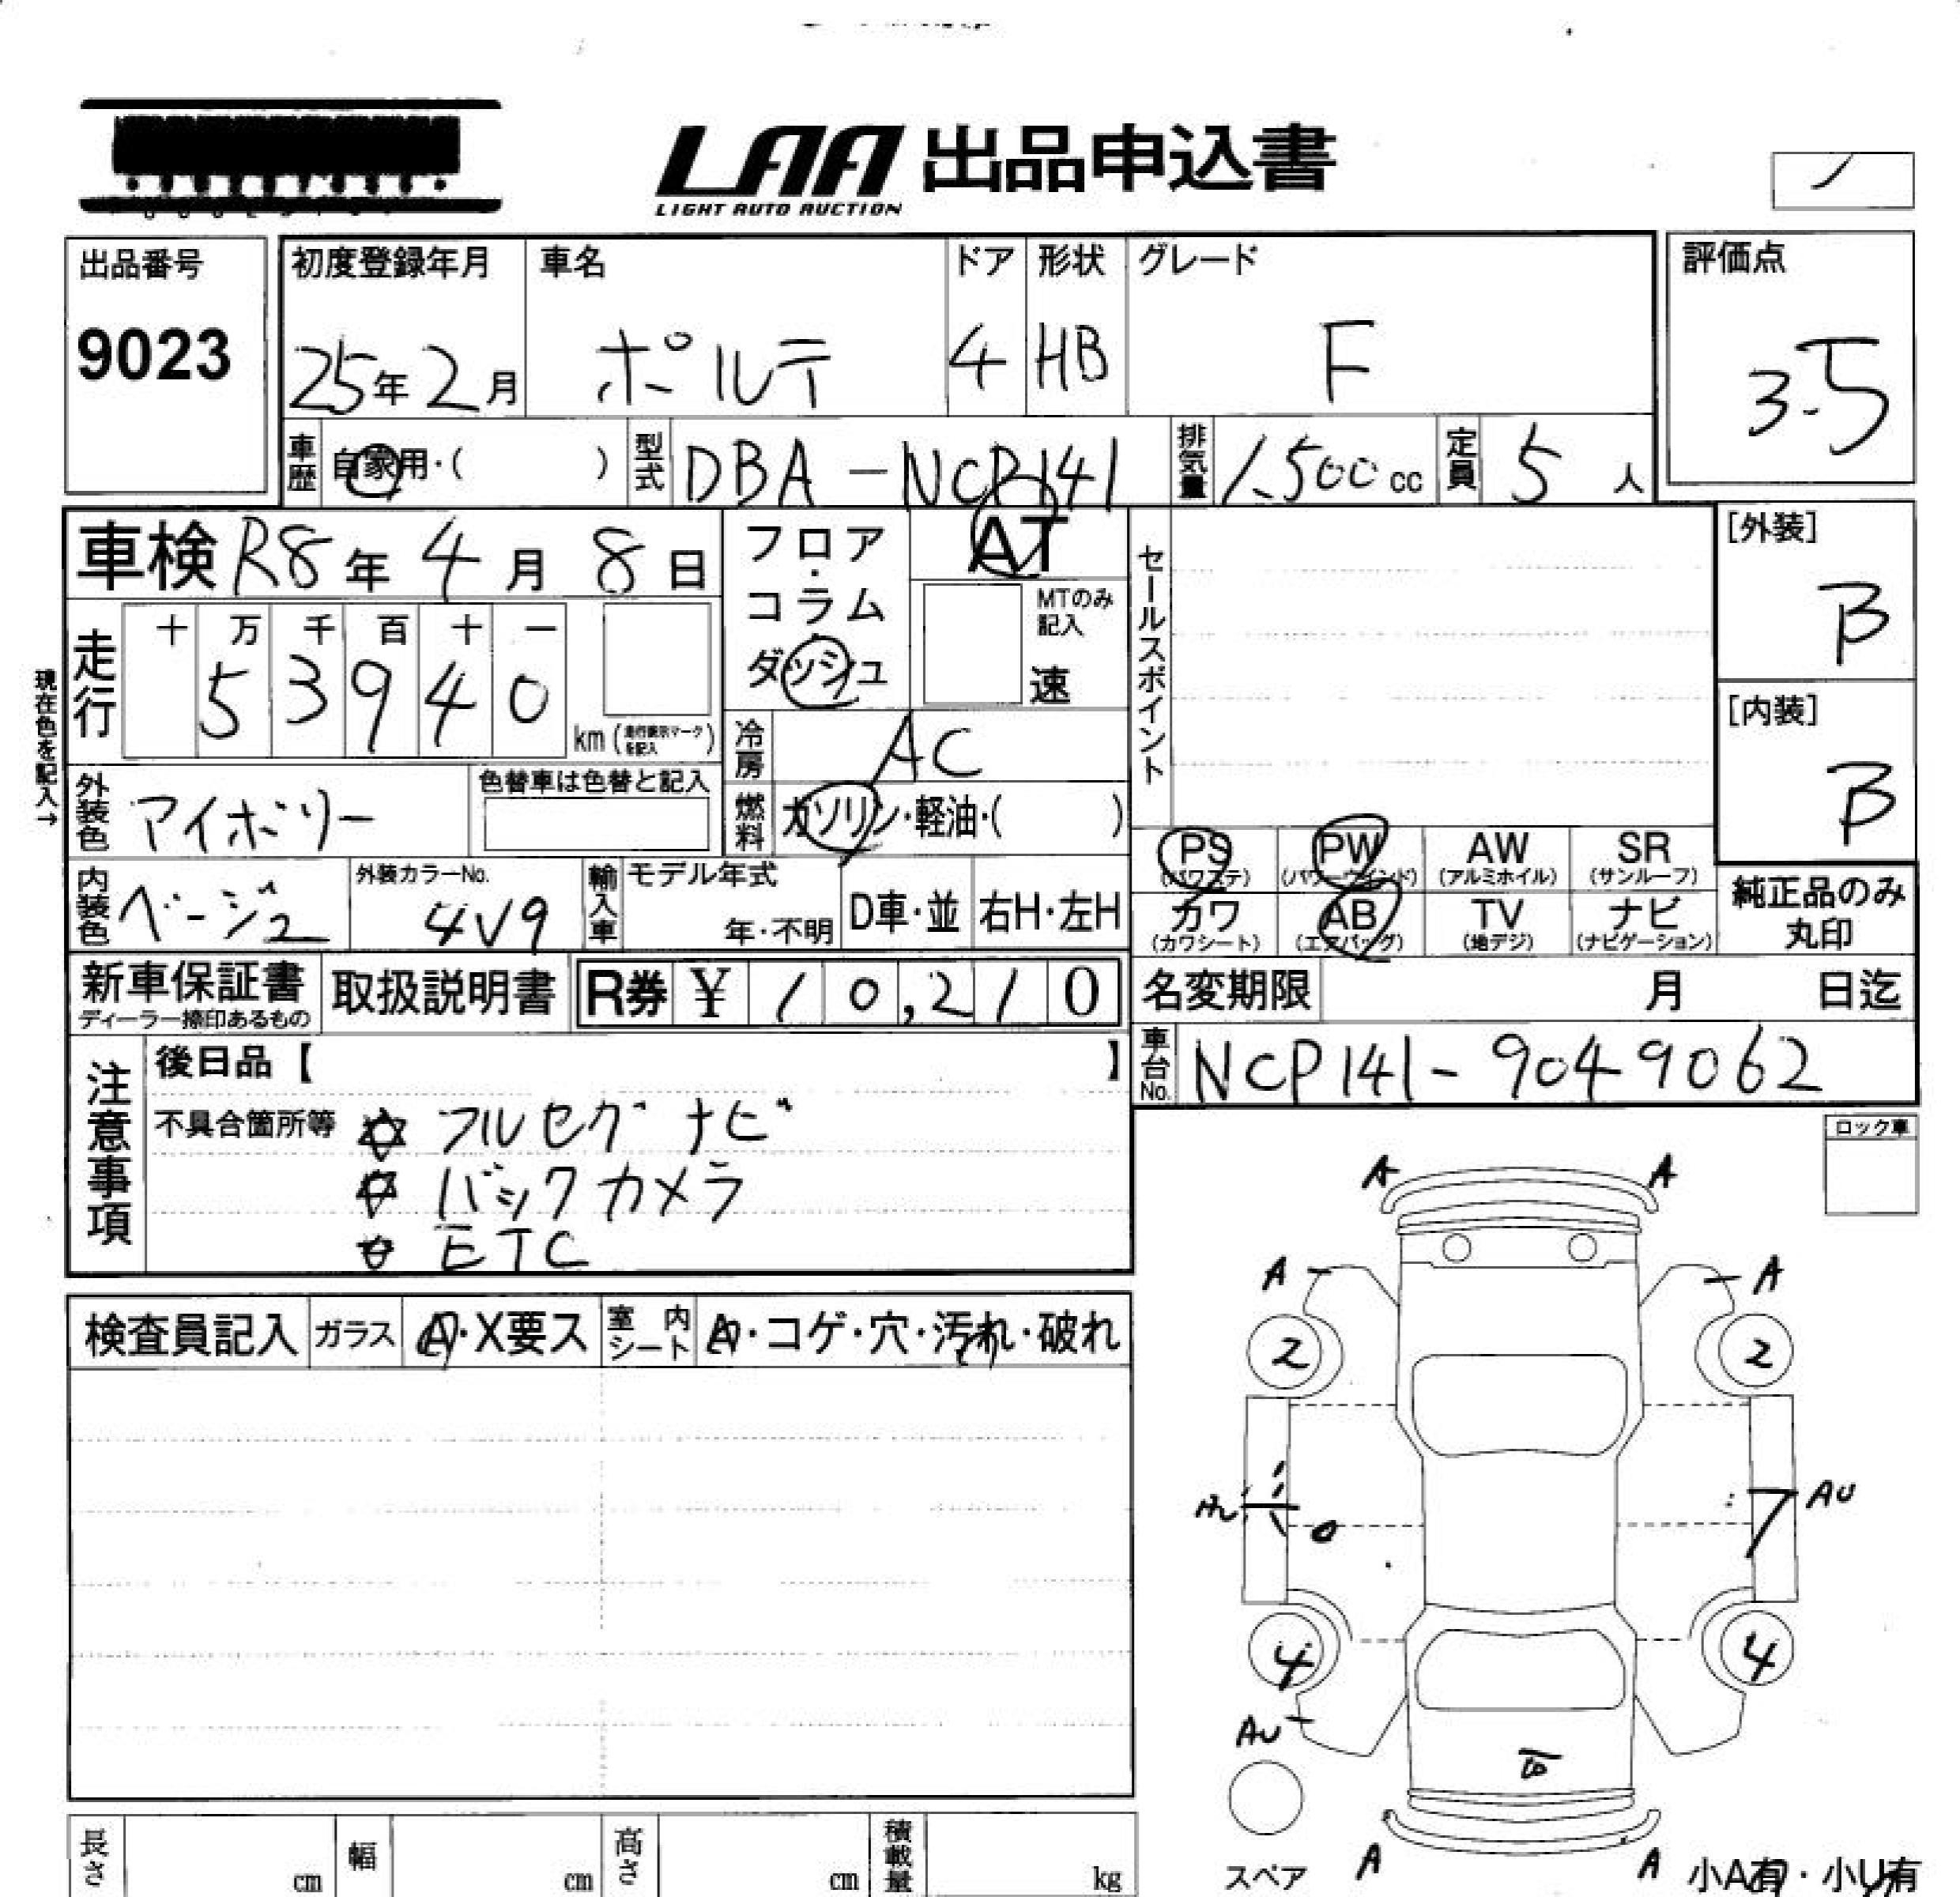 LAA 出品申込書
LIGHT AUTO AUCTION
出品番号
9023
初度登録年月 車名 ドア 形状 グレード
25年2月 ポルテ 4 HB F
評価点
3.5
車歴 自家用・( ) 型式 DBA-NCP141 排気量 1,500cc 定員 5人
車検 R8年4月8日
フロア・コラム・ダッシュ
AT
MTのみ記入
速
セールスポイント
[外装]
B
[内装]
B
現在色を記入→
走行
十 万 千 百 十 一
5 3 9 4 0
km (走行表示マークを記入)
冷房 AC
外装色 アイボリー
色替車は色替と記入
燃料 ガソリン・軽油・( )
内装色 ベージュ
外装カラーNo.
4V9
輸入車 モデル年式
年・不明
D車・並 右H・左H
PS (パワステ) PW (パワーウインド) AW (アルミホイル) SR (サンルーフ)
カワ (カワシート) AB (エアバッグ) TV (地デジ) ナビ (ナビゲーション)
純正品のみ
丸印
新車保証書
ディーラー捺印あるもの
取扱説明書
R券 ¥ 10,210
名変期限 月 日迄
車台No. NCP141-9049062
注意事項
後日品【 】
不具合箇所等 フルセグ ナビ
バックカメラ
ETC
ロック車
A A
A A
2 2
AU
4 4
AU
A A
スペア
小A有・小U有
検査員記入 ガラス A・X要ス 室内シート A・コゲ・穴・汚れ・破れ
長さ cm 幅 cm 高さ cm 積載量 kg